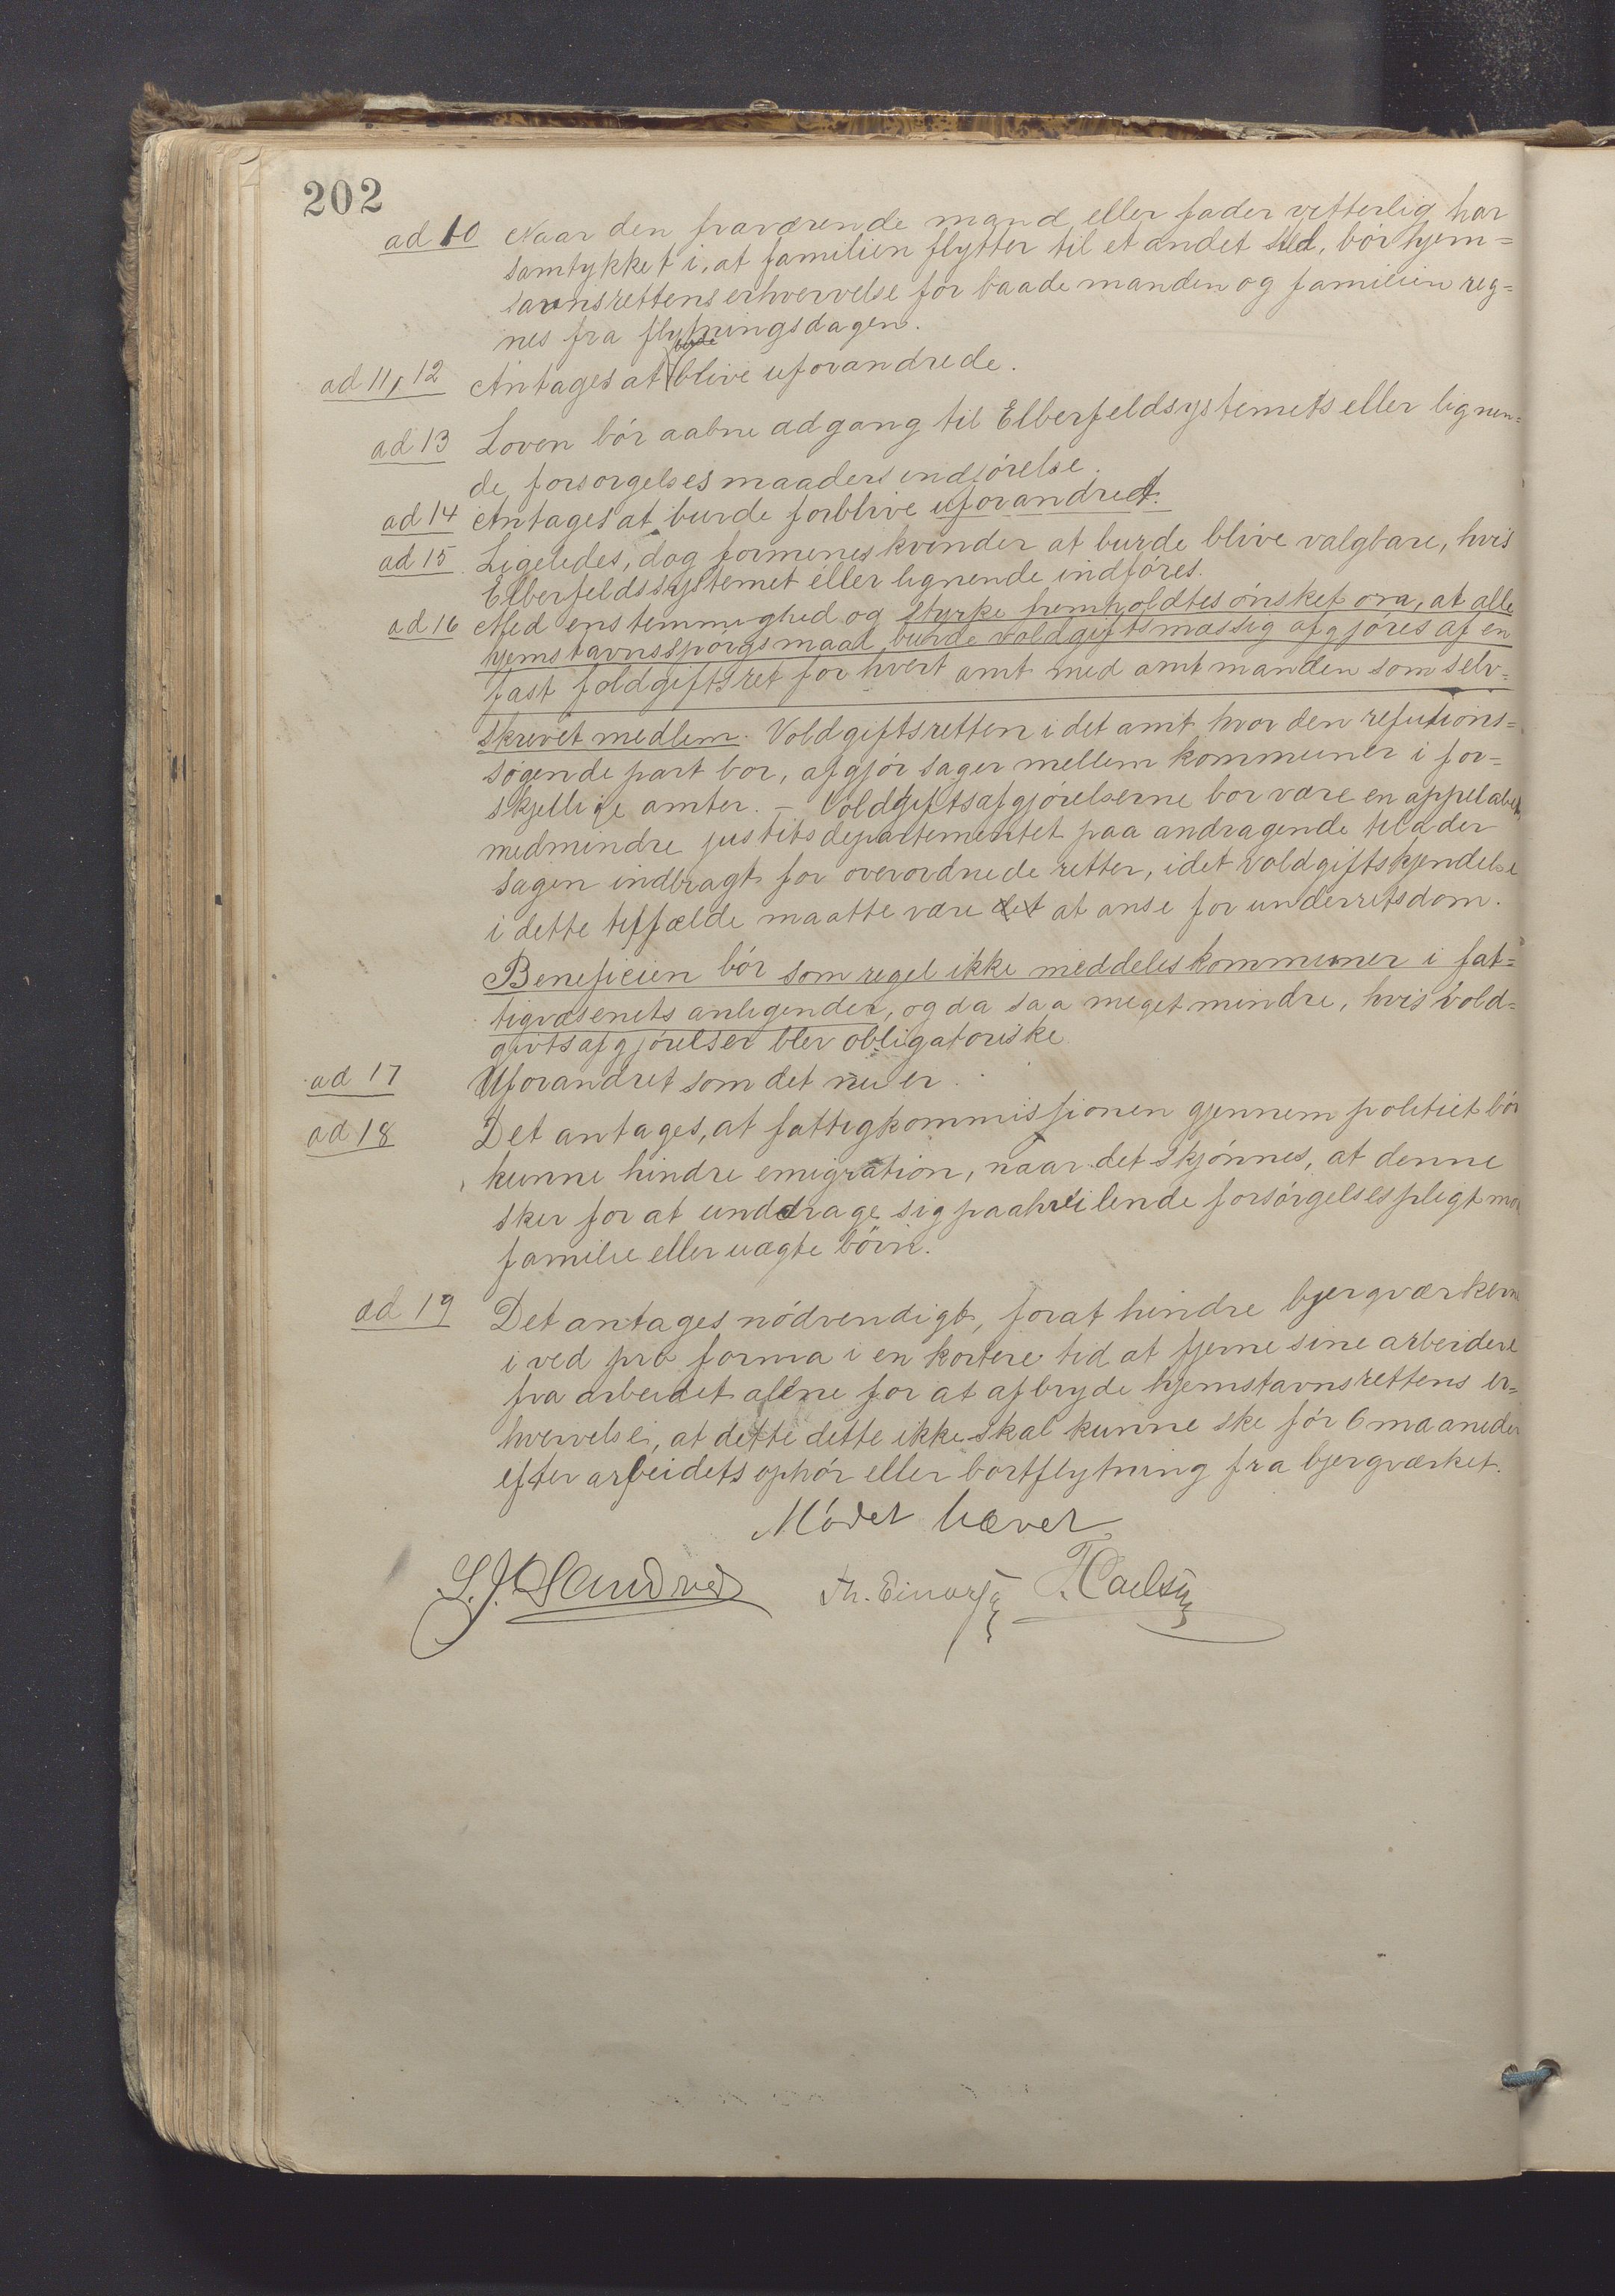 202
ad 10 Naar den fraværende mand eller fader vitterlig har
samtykket i, at familien flytter til et andet sted, bør hjem=
savnsrettens erhvervelse for baade manden og familien reg=
nes fra flytningsdagen.
ad 11, 12 Antages at burde blive uforandrede.
ad 13 Loven bór aabne adgang til Elberfeldsystemets eller lignen=
de forsorgelsesmaaders indførelse.
ad 14 Antages at burde forblive uforandret.
ad 15 Ligeledes, dog formenes kvinder at burde blive valgbare, hvis
Elberfeldssystemet eller lignende indføres.
ad 16 Med enstemmighed og styrke fremholdtes ønsket om, at alle
hjemstavnsspørgsmaal burde voldgiftsmæssig afgjøres af en
fast foldgiftsret for hvert amt med amtmanden som selv=
skrevet medlem. Voldgiftsretten i det amt hvor den refusions=
søgende part bor, afgjør sager mellem kommuner i for=
skjellige amter. – Voldgiftsafgjørelserne bør være en appelabel,
medmindre justitsdepartementet paa andragende tilader
sagen indbragt for overordnede retter, idet voldgiftskjendelse
i dette tilfælde maatte være det at anse for underretsdom.
Beneficien bór som regel ikke meddeles kommuner i fat=
tigvæsenets anligender, og da saa meget mindre, hvis vold=
givtsafgjørelser blev obligatoriske
ad 17 Uforandret som det nu er.
ad 18 Det antages, at fattigkommissionen gjennem politiet bór
kunne hindre emigration, naar det skjønnes, at denne
sker for at unddrage sig paahvilende forsørgelsespligt mo
familie eller uægte børn.
ad 19 Det antages nødvendigt, forat hindre bjergværkerne
i ved pro forma i en kortere tid at fjerne sine arbeidere
fra arbeidet alene for at afbryde hjemstavnsrettens er=
hvervelse, at dette dette ikke skal kunne ske før 6 maaneder
efter arbeidets ophør eller bortflytning fra bjergværket.
Mødet hævet
L. J. Sandved Th. Einarsen T. Carlsen